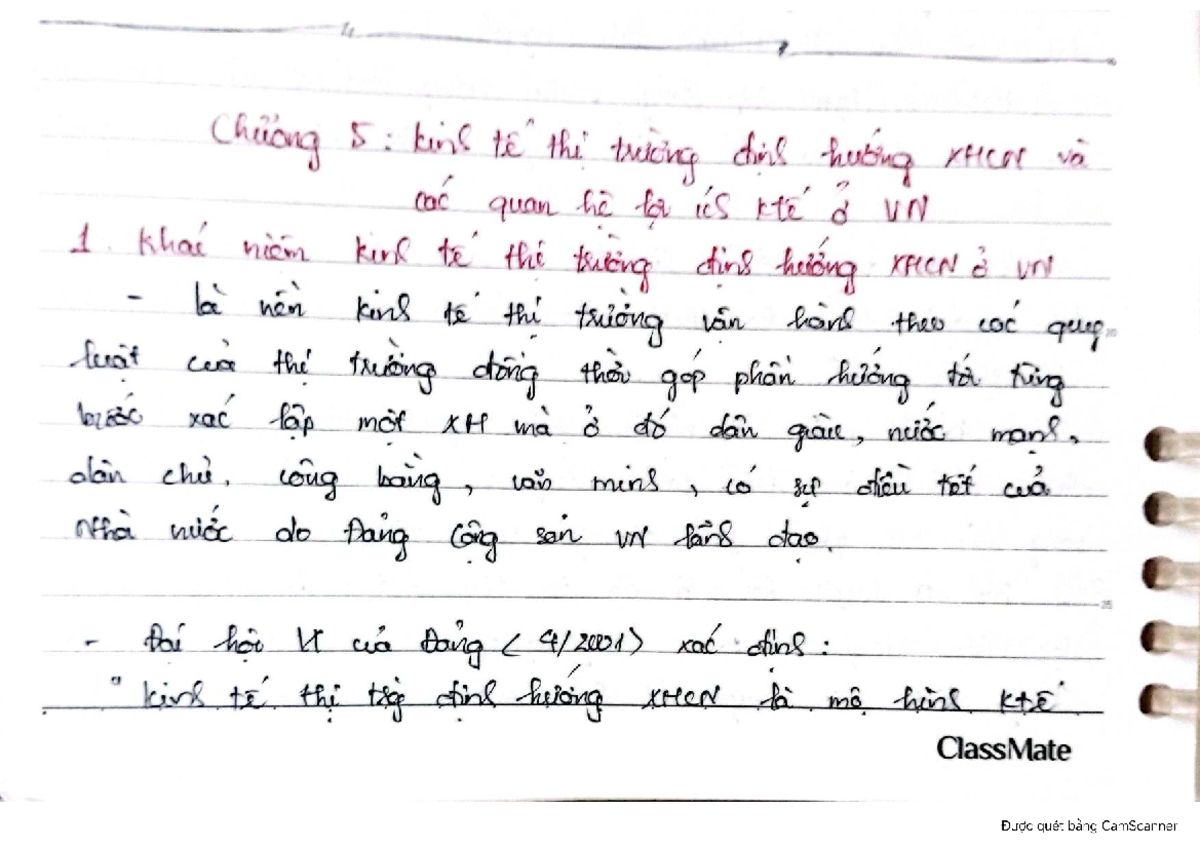 Chương 5 : Kinh tế thị trường định hướng XHCN và
các quan hệ lợi ích ktế ở VN
1. Khái niệm kinh tế thị trường định hướng XHCN ở VN
- là nền kinh tế thị trường vận hành theo các quy
luật của thị trường đồng thời góp phần hướng tới từng
bước xác lập một XH mà ở đó dân giàu, nước mạnh,
dân chủ, công bằng, văn minh, có sự điều tiết của
Nhà nước do Đảng Cộng sản VN lãnh đạo.
- Đại hội IX của Đảng (4/2001) xác định :
"kinh tế thị trg định hướng XHCN là mô hình ktế
ClassMate
Được quét bằng CamScanner